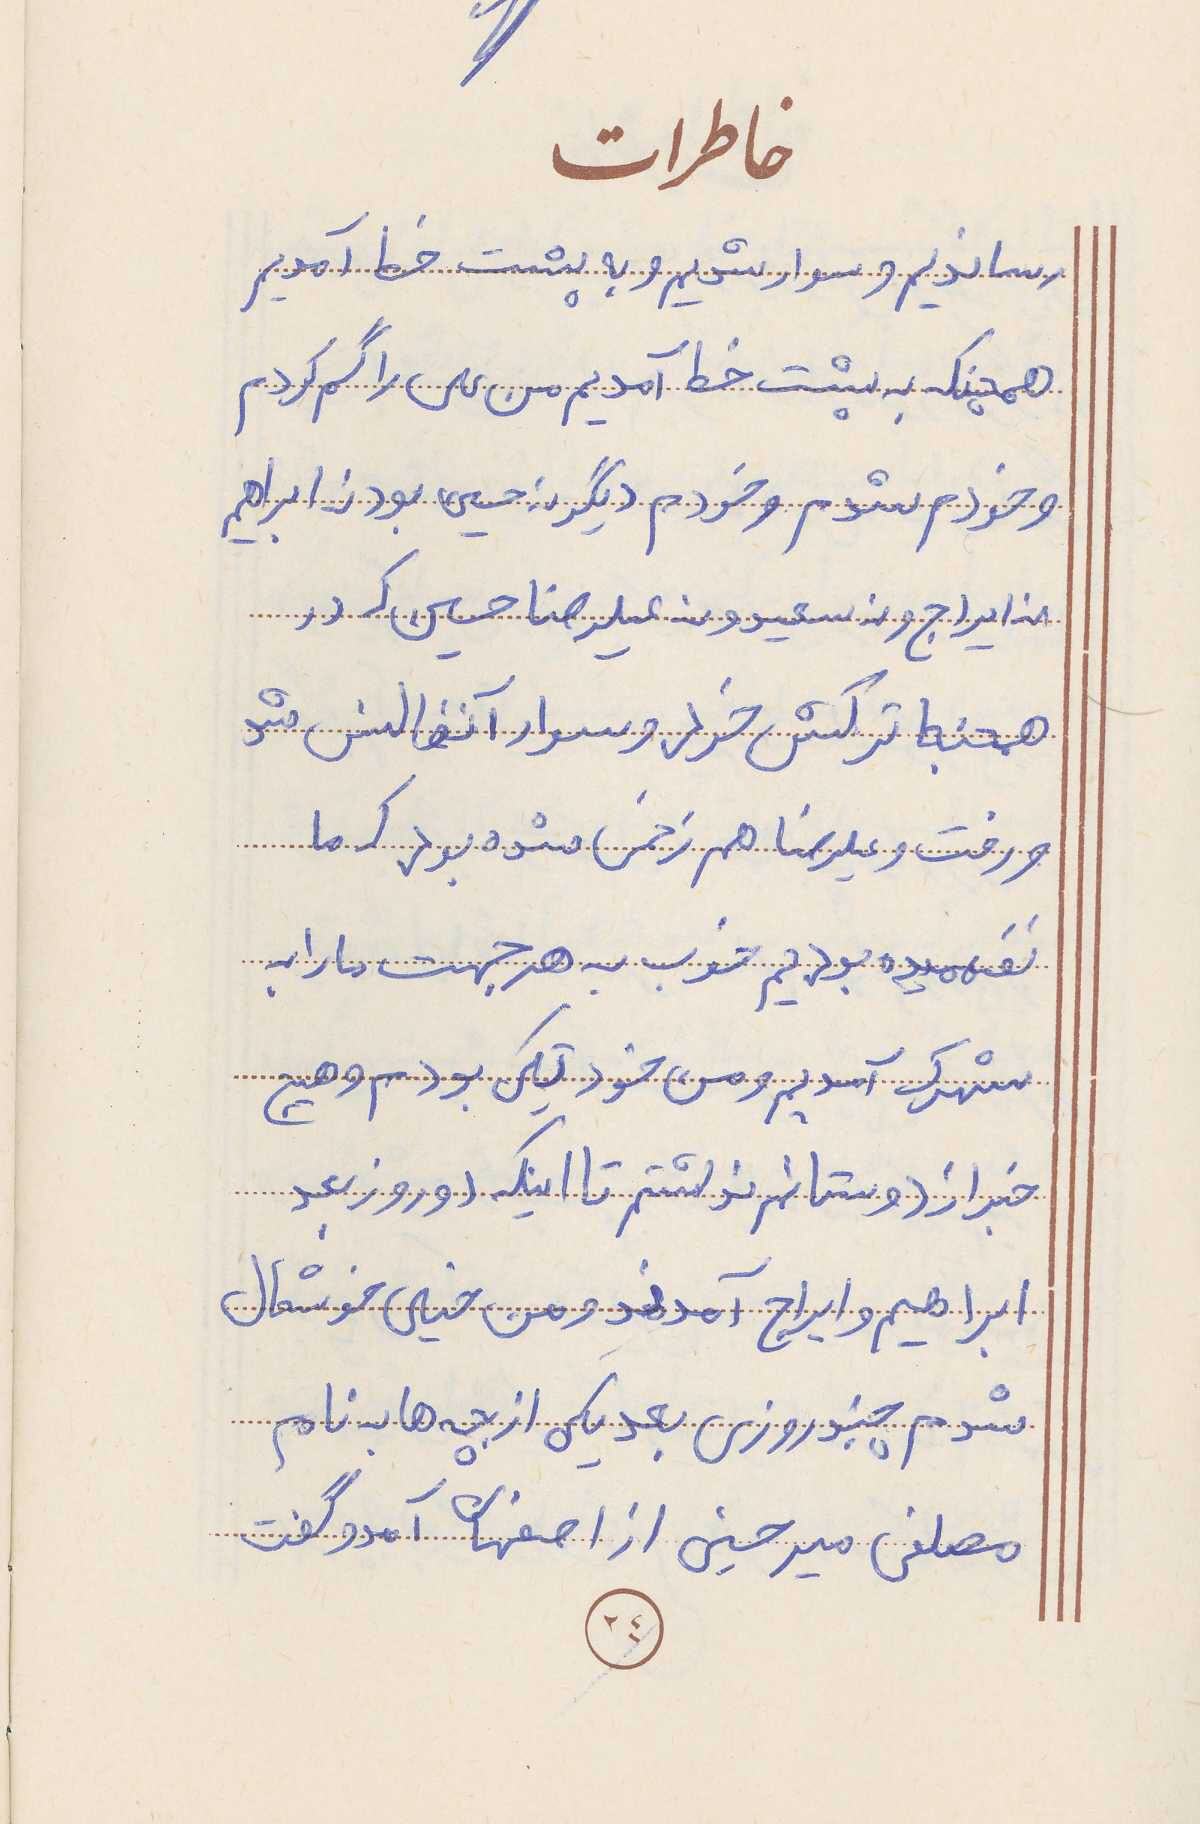 خاطرات
رساندیم و سوار شدیم و به پشت خط آمدیم
همچنکه به پشت خط آمدیم من علی را گم کردم
و خودم شدم و خودم دیگر نه حسین بود نه ابراهیم
نه ایراج و نه سعید و نه علیرضا حسین که در
همنجا ترکش خورد و سوار آنفالنس شد
و رفت و علیرضا هم زخمی شده بود که ما
نفهمیده بودیم خوب به هر جهت ما را به
شهرک آمدیم و من خود تیکی بودم و هیچ
خبر از دوستانم نداشتم تا اینکه دو روز بعد
ابراهیم و ایراج آمدند و من خیلی خوشحال
شدم چند روزی بعد یکی از بچه ها به نام
مصلفی میرحینی از اصفهان آمد و گفت
۲٤